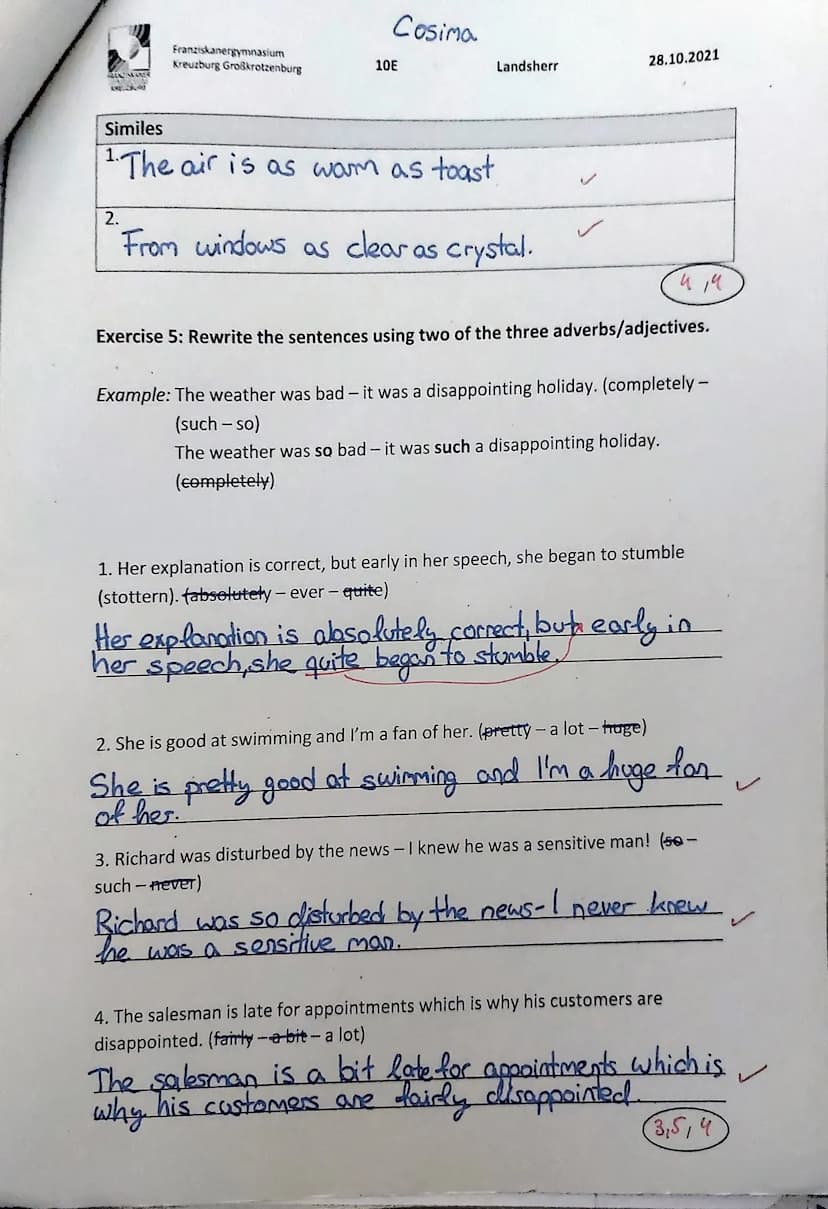 Cosima
Franziskanergymnasium
Kreuzburg Großkrotzenburg 10E Landsherr 28.10.2021
Similes
1. The air is as warm as toast
2. From windows as clear as crystal.
4 / 4
Exercise 5: Rewrite the sentences using two of the three adverbs/adjectives.
Example: The weather was bad – it was a disappointing holiday. (completely –
(such – so)
The weather was so bad – it was such a disappointing holiday.
(completely)
1. Her explanation is correct, but early in her speech, she began to stumble
(stottern). (absolutely – ever – quite)
Her explanation is absolutely correct, but early in
her speech, she quite began to stumble.
2. She is good at swimming and I'm a fan of her. (pretty – a lot – huge)
She is pretty good at swimming and I'm a huge fan
of her.
3. Richard was disturbed by the news – I knew he was a sensitive man! (so –
such – never)
Richard was so disturbed by the news - I never knew
he was a sensitive man.
4. The salesman is late for appointments which is why his customers are
disappointed. (fairly – a bit – a lot)
The salesman is a bit late for appointments which is
why his customers are fairly disappointed.
3,5 / 4